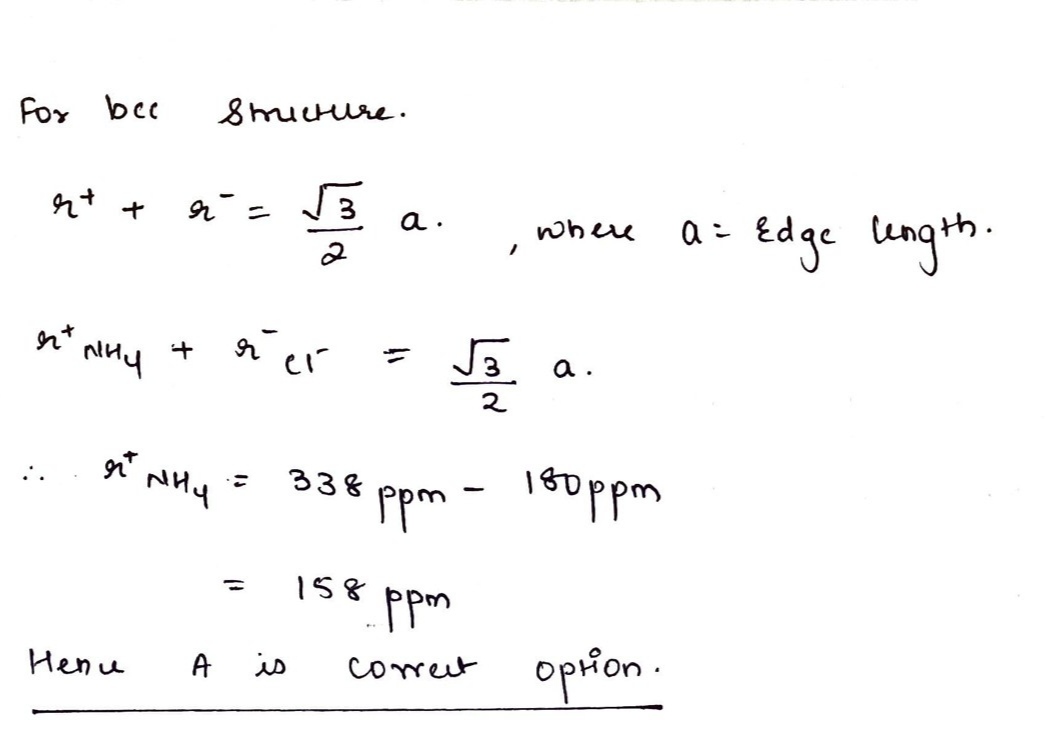 For bcc Structure.
r⁺ + r⁻ = √3/2 a. , where a = Edge length.
r⁺ NH4 + r⁻ Cl⁻ = √3/2 a.
∴ r⁺ NH4 = 338 ppm - 180 ppm
= 158 ppm
Hence A is correct option.